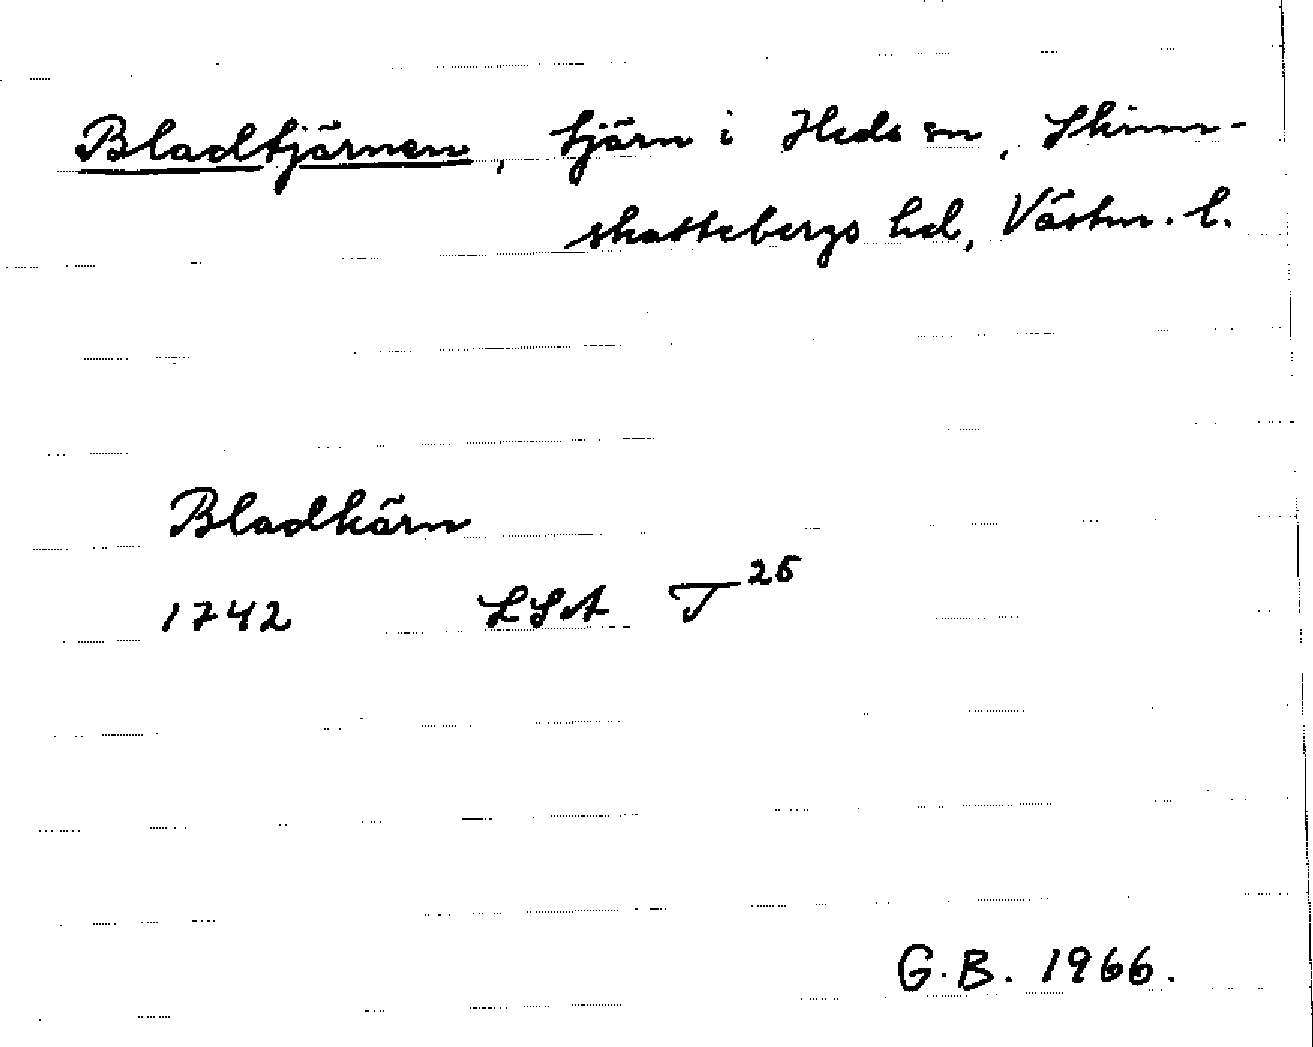 Bladtjärnen, tjärn i Heds sn, Skinn-
skattebergs hd, Västm. l.
Bladkärn
1742 LSA T 26
G.B. 1966.